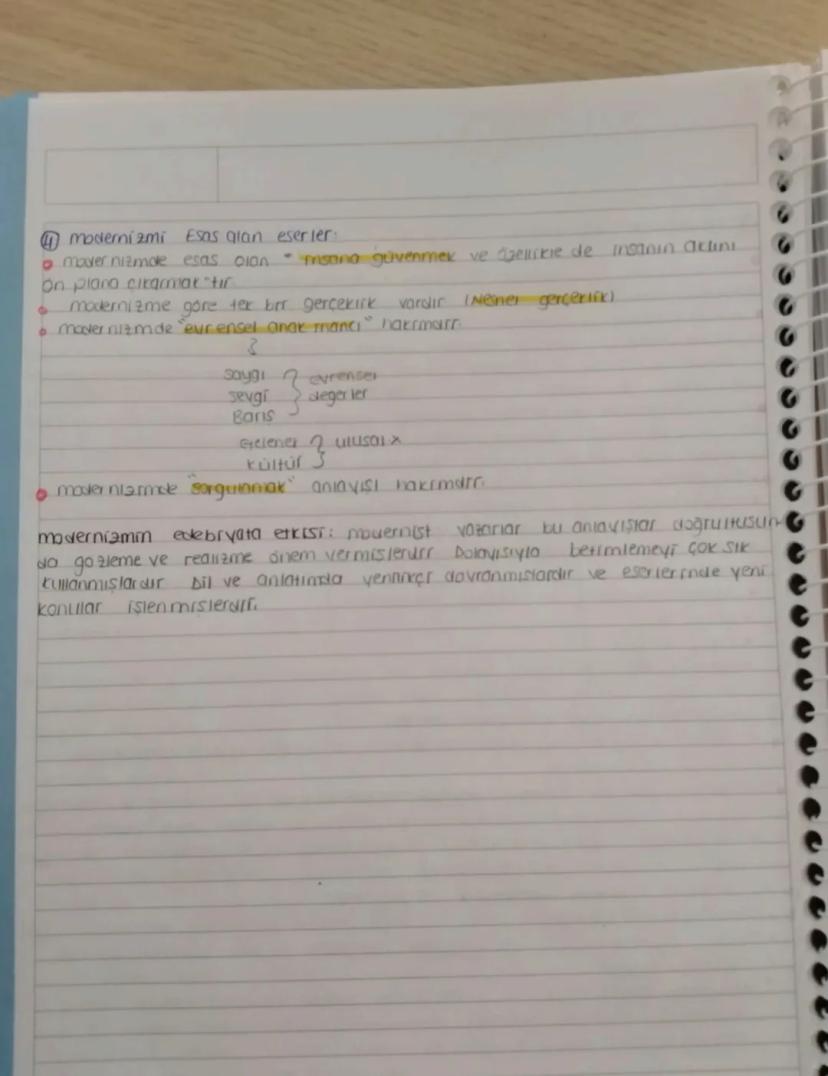 ④ modernizmi Esas alan eserler:
modernizmde esas olan "insana güvenmek ve özellikle de insanın aklını
ön plana çıkarmak"tır
modernizme göre tek bir gerçeklik vardır (Nesnel gerçeklik)
modernizmde "evrensel ahlak inancı" hakimdir.
saygı } evrensel
sevgi } değerler
Barış
Gelenek } ulusal x
kültür }
modernizmde "sorgulamak" anlayışı hakimdir.
modernizmin edebiyata etkisi: modernist yazarlar bu anlayışlar doğrultusun
da gözleme ve realizme önem vermişlerdir Dolayısıyla betimlemeyi çok sık
kullanmışlardır Dil ve anlatımda yenilikçi davranmışlardır ve eserlerinde yeni
konular işlenmişlerdir.